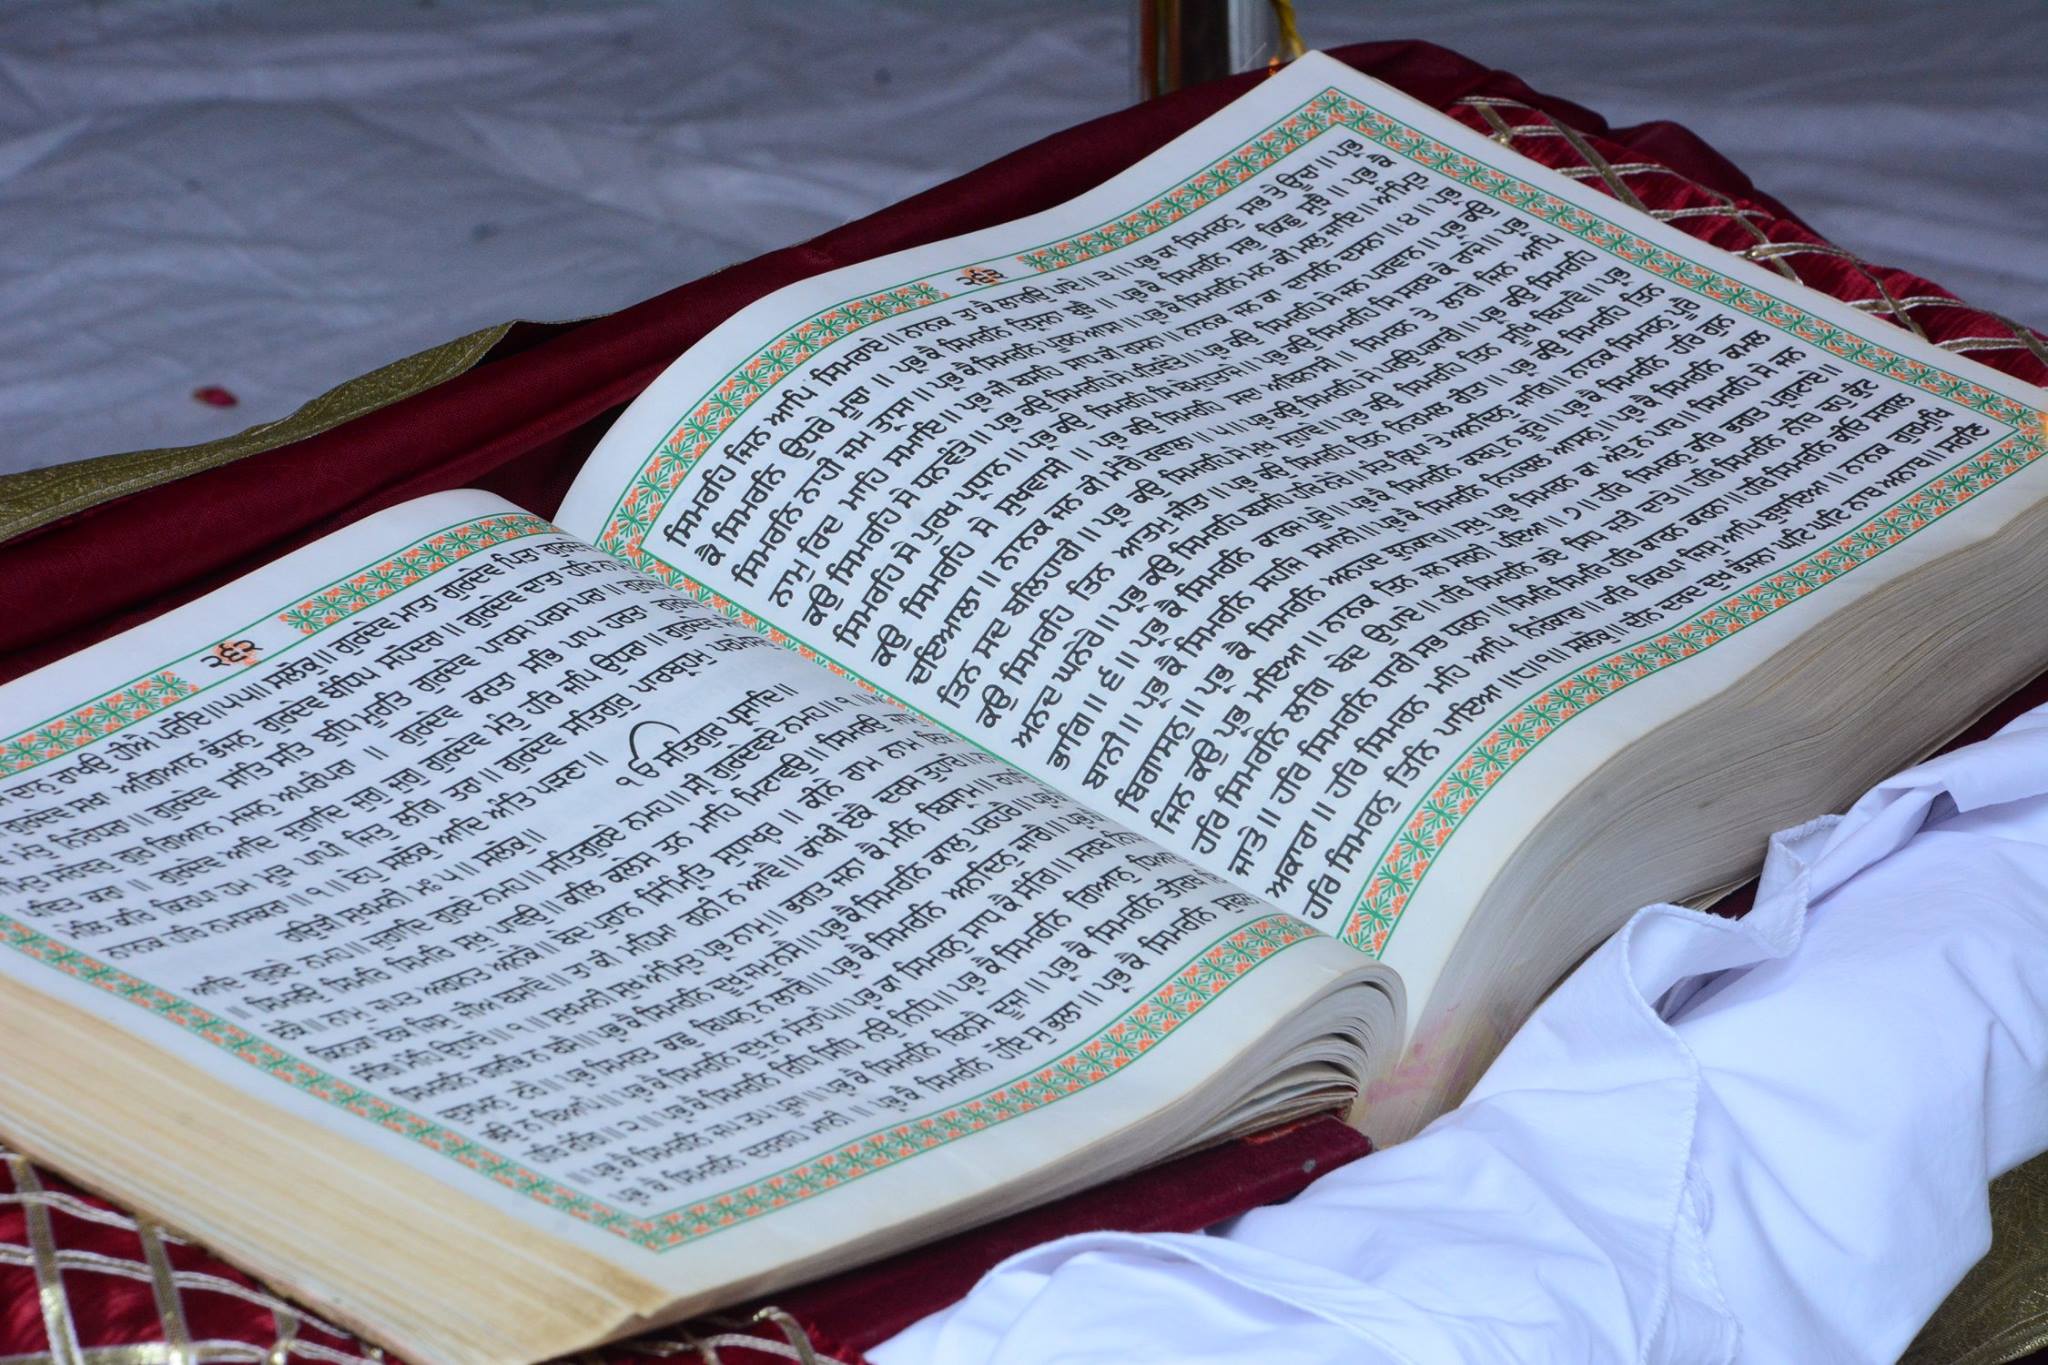 ੨੬੨
ਦਾਨੁ ਰਾਖਉ ਹੀਐ ਪਰੋਇ ॥੫੫॥ ਸਲੋਕੁ ॥ ਗੁਰਦੇਵ ਮਾਤਾ ਗੁਰਦੇਵ ਪਿਤਾ
ਗੁਰਦੇਵ ਸਖਾ ਅਗਿਆਨ ਭੰਜਨੁ ਗੁਰਦੇਵ ਬੰਧਿਪ ਸਹੋਦਰਾ ॥ ਗੁਰਦੇਵ ਦਾਤਾ ਹਰਿ
ਮੰਤੁ ਨਿਰੋਧਰਾ ॥ ਗੁਰਦੇਵ ਸਾਂਤਿ ਸਤਿ ਬੁਧਿ ਮੂਰਤਿ ਗੁਰਦੇਵ ਪਾਰਸ ਪਰਸ ਪਰਾ ॥
ਸਰੋਵਰੁ ਗੁਰ ਗਿਆਨ ਮਜਨੁ ਅਪਰੰਪਰਾ ॥ ਗੁਰਦੇਵ ਕਰਤਾ ਸਭਿ ਪਾਪ ਹਰਤਾ
ਪਵਿਤ ਕਰਾ ॥ ਗੁਰਦੇਵ ਆਦਿ ਜੁਗਾਦਿ ਜੁਗੁ ਜੁਗੁ ਗੁਰਦੇਵ ਮੰਤੁ ਹਰਿ ਜਪਿ ਉਧਰਾ ॥
ਮੇਲਿ ਕਰਿ ਕਿਰਪਾ ਹਮ ਮੂੜ ਪਾਪੀ ਜਿਤੁ ਲਗਿ ਤਰਾ ॥ ਗੁਰਦੇਵ ਸਤਿਗੁਰੁ ਪਾਰਬ੍ਰਹਮੁ
ਨਾਨਕ ਹਰਿ ਨਮਸਕਰਾ ॥੧॥ ਏਹੁ ਸਲੋਕੁ ਆਦਿ ਅੰਤਿ ਪੜਣਾ ॥
ਗਉੜੀ ਸੁਖਮਨੀ ਮਃ ੫ ॥ ਸਲੋਕੁ ॥ ੴ ਸਤਿਗੁਰ ਪ੍ਰਸਾਦਿ ॥
ਆਦਿ ਗੁਰਏ ਨਮਹ ॥ ਜੁਗਾਦਿ ਗੁਰਏ ਨਮਹ ॥ ਸਤਿਗੁਰਏ ਨਮਹ ॥ ਸ੍ਰੀ ਗੁਰਦੇਵਏ ਨਮਹ ॥੧॥
॥ ਸਿਮਰਉ ਸਿਮਰਿ ਸਿਮਰਿ ਸੁਖੁ ਪਾਵਉ ॥ ਕਲਿ ਕਲੇਸ ਤਨ ਮਾਹਿ ਮਿਟਾਵਉ ॥ ਸਿਮਰਉ
ਏਕੈ ॥ ਨਾਮੁ ਜਪਤ ਅਗਨਤ ਅਨੇਕੈ ॥ ਬੇਦ ਪੁਰਾਨ ਸਿੰਮ੍ਰਿਤਿ ਸੁਧਾਖ੍ਯ੍ਯਰ ॥ ਕੀਨੇ ਰਾਮ ਨਾਮ
ਕਿਨਕਾ ਏਕ ਜਿਸੁ ਜੀਅ ਬਸਾਵੈ ॥ ਤਾ ਕੀ ਮਹਿਮਾ ਗਨੀ ਨ ਆਵੈ ॥ ਕਾਂਖੀ ਏਕੈ ਦਰਸ ਤੁਹਾਰੋ ॥
ਸੰਗਿ ਮੋਹਿ ਉਧਾਰੋ ॥੧॥ ਸੁਖਮਨੀ ਸੁਖ ਅੰਮ੍ਰਿਤ ਪ੍ਰਭ ਨਾਮੁ ॥ ਭਗਤ ਜਨਾ ਕੈ ਮਨਿ ਬਿਸ੍ਰਾਮ ॥
ਸਿਮਰਨਿ ਗਰਭਿ ਨ ਬਸੈ ॥ ਪ੍ਰਭ ਕੈ ਸਿਮਰਨਿ ਦੂਖੁ ਜਮੁ ਨਸੈ ॥ ਪ੍ਰਭ ਕੈ ਸਿਮਰਨਿ ਕਾਲੁ ਪਰਹਰੈ ॥
ਦੁਸਮਨੁ ਟਰੈ ॥ ਪ੍ਰਭ ਸਿਮਰਤ ਕਛੁ ਬਿਘਨੁ ਨ ਲਾਗੈ ॥ ਪ੍ਰਭ ਕੈ ਸਿਮਰਨਿ ਅਨਦਿਨੁ ਜਾਗੈ ॥
ਭਉ ਨ ਬਿਆਪੈ ॥ ਪ੍ਰਭ ਕੈ ਸਿਮਰਨਿ ਦੁਖੁ ਨ ਸੰਤਾਪੈ ॥ ਪ੍ਰਭ ਕਾ ਸਿਮਰਨੁ ਸਾਧ ਕੈ ਸੰਗਿ ॥ ਸਰਬ
ਹਰਿ ਰੰਗਿ ॥੨॥ ਪ੍ਰਭ ਕੈ ਸਿਮਰਨਿ ਰਿਧਿ ਸਿਧਿ ਨਉ ਨਿਧਿ ॥ ਪ੍ਰਭ ਕੈ ਸਿਮਰਨਿ ਗਿਆਨੁ
॥ ਪ੍ਰਭ ਕੈ ਸਿਮਰਨਿ ਜਪ ਤਪ ਪੂਜਾ ॥ ਪ੍ਰਭ ਕੈ ਸਿਮਰਨਿ ਬਿਨਸੈ ਦੂਜਾ ॥ ਪ੍ਰਭ ਕੈ ਸਿਮਰਨਿ ਤੀਰਥ
ਪ੍ਰਭ ਕੈ ਸਿਮਰਨਿ ਦਰਗਹ ਮਾਨੀ ॥ ਪ੍ਰਭ ਕੈ ਸਿਮਰਨਿ ਹੋਇ ਸੁ ਭਲਾ ॥ ਪ੍ਰਭ ਕੈ ਸਿਮਰਨਿ ਸੁਫਲ
੨੬੩
ਸਿਮਰਹਿ ਜਿਨ ਆਪਿ ਸਿਮਰਾਏ ॥ ਨਾਨਕ ਤਾ ਕੈ ਲਾਗਉ ਪਾਏ ॥੩॥ ਪ੍ਰਭ ਕਾ ਸਿਮਰਨੁ ਸਭ ਤੇ ਊਚਾ ॥ ਪ੍ਰਭ
ਕੈ ਸਿਮਰਨਿ ਉਧਰੇ ਮੂਚਾ ॥ ਪ੍ਰਭ ਕੈ ਸਿਮਰਨਿ ਤ੍ਰਿਸਨਾ ਬੁਝੈ ॥ ਪ੍ਰਭ ਕੈ ਸਿਮਰਨਿ ਸਭੁ ਕਿਛੁ ਸੁਝੈ ॥ ਪ੍ਰਭ ਕੈ
ਸਿਮਰਨਿ ਨਾਹੀ ਜਮ ਤ੍ਰਾਸਾ ॥ ਪ੍ਰਭ ਕੈ ਸਿਮਰਨਿ ਪੂਰਨ ਆਸਾ ॥ ਪ੍ਰਭ ਕੈ ਸਿਮਰਨਿ ਮਨ ਕੀ ਮਲੁ ਜਾਇ ॥ ਅੰਮ੍ਰਿਤ
ਨਾਮੁ ਰਿਦ ਮਾਹਿ ਸਮਾਇ ॥ ਪ੍ਰਭ ਜੀ ਬਸਹਿ ਸਾਧ ਕੀ ਰਸਨਾ ॥ ਨਾਨਕ ਜਨ ਕਾ ਦਾਸਨਿ ਦਸਨਾ ॥੪॥ ਪ੍ਰਭ
ਕਉ ਸਿਮਰਹਿ ਸੇ ਧਨਵੰਤੇ ॥ ਪ੍ਰਭ ਕਉ ਸਿਮਰਹਿ ਸੇ ਪਤਿਵੰਤੇ ॥ ਪ੍ਰਭ ਕਉ ਸਿਮਰਹਿ ਸੇ ਜਨ ਪਰਵਾਨ ॥ ਪ੍ਰਭ ਕਉ
ਸਿਮਰਹਿ ਸੇ ਪੁਰਖ ਪ੍ਰਧਾਨ ॥ ਪ੍ਰਭ ਕਉ ਸਿਮਰਹਿ ਸਿ ਬੇਮੁਹਤਾਜੇ ॥ ਪ੍ਰਭ ਕਉ ਸਿਮਰਹਿ ਸਿ ਸਰਬ ਕੇ ਰਾਜੇ ॥ ਪ੍ਰਭ
ਕਉ ਸਿਮਰਹਿ ਸੇ ਸੁਖਵਾਸੀ ॥ ਪ੍ਰਭ ਕਉ ਸਿਮਰਹਿ ਸਦਾ ਅਬਿਨਾਸੀ ॥ ਸਿਮਰਨ ਤੇ ਲਾਗੇ ਜਿਨ ਆਪਿ
ਦਇਆਲਾ ॥ ਨਾਨਕ ਜਨ ਕੀ ਮੰਗੈ ਰਵਾਲਾ ॥੫॥ ਪ੍ਰਭ ਕਉ ਸਿਮਰਹਿ ਸੇ ਪਰਉਪਕਾਰੀ ॥ ਪ੍ਰਭ ਕਉ ਸਿਮਰਹਿ
ਤਿਨ ਸਦ ਬਲਿਹਾਰੀ ॥ ਪ੍ਰਭ ਕਉ ਸਿਮਰਹਿ ਸੇ ਮੁਖ ਸੁਹਾਵੇ ॥ ਪ੍ਰਭ ਕਉ ਸਿਮਰਹਿ ਤਿਨ ਸੂਖਿ ਬਿਹਾਵੈ ॥ ਪ੍ਰਭ
ਕਉ ਸਿਮਰਹਿ ਤਿਨ ਆਤਮੁ ਜੀਤਾ ॥ ਪ੍ਰਭ ਕਉ ਸਿਮਰਹਿ ਤਿਨ ਨਿਰਮਲ ਰੀਤਾ ॥ ਪ੍ਰਭ ਕਉ ਸਿਮਰਹਿ ਤਿਨ
ਅਨਦ ਘਨੇਰੇ ॥ ਪ੍ਰਭ ਕਉ ਸਿਮਰਹਿ ਬਸਹਿ ਹਰਿ ਨੇਰੇ ॥ ਸੰਤ ਕ੍ਰਿਪਾ ਤੇ ਅਨਦਿਨੁ ਜਾਗਿ ॥ ਨਾਨਕ ਸਿਮਰਨੁ ਪੂਰੈ
ਭਾਗਿ ॥੬॥ ਪ੍ਰਭ ਕੈ ਸਿਮਰਨਿ ਕਾਰਜ ਪੂਰੇ ॥ ਪ੍ਰਭ ਕੈ ਸਿਮਰਨਿ ਕਬਹੁ ਨ ਝੂਰੇ ॥ ਪ੍ਰਭ ਕੈ ਸਿਮਰਨਿ ਹਰਿ ਗੁਨ
ਬਾਨੀ ॥ ਪ੍ਰਭ ਕੈ ਸਿਮਰਨਿ ਸਹਜਿ ਸਮਾਨੀ ॥ ਪ੍ਰਭ ਕੈ ਸਿਮਰਨਿ ਨਿਹਚਲ ਆਸਨੁ ॥ ਪ੍ਰਭ ਕੈ ਸਿਮਰਨਿ ਕਮਲ
ਬਿਗਾਸਨੁ ॥ ਪ੍ਰਭ ਕੈ ਸਿਮਰਨਿ ਅਨਹਦ ਝੁਨਕਾਰ ॥ ਸੁਖੁ ਪ੍ਰਭ ਸਿਮਰਨ ਕਾ ਅੰਤੁ ਨ ਪਾਰ ॥ ਸਿਮਰਹਿ ਸੇ ਜਨ
ਜਿਨ ਕਉ ਪ੍ਰਭ ਮਇਆ ॥ ਨਾਨਕ ਤਿਨ ਜਨ ਸਰਨੀ ਪਇਆ ॥੭॥ ਹਰਿ ਸਿਮਰਨੁ ਕਰਿ ਭਗਤ ਪ੍ਰਗਟਾਏ ॥
ਹਰਿ ਸਿਮਰਨਿ ਲਗਿ ਬੇਦ ਉਪਾਏ ॥ ਹਰਿ ਸਿਮਰਨਿ ਭਏ ਸਿਧ ਜਤੀ ਦਾਤੇ ॥ ਹਰਿ ਸਿਮਰਨਿ ਨੀਚ ਚਹੁ ਕੁੰਟ
ਜਾਤੇ ॥ ਹਰਿ ਸਿਮਰਨਿ ਧਾਰੀ ਸਭ ਧਰਨਾ ॥ ਸਿਮਰਿ ਸਿਮਰਿ ਹਰਿ ਕਾਰਨ ਕਰਨਾ ॥ ਹਰਿ ਸਿਮਰਨਿ ਕੀਓ ਸਗਲ
ਅਕਾਰਾ ॥ ਹਰਿ ਸਿਮਰਨ ਮਹਿ ਆਪਿ ਨਿਰੰਕਾਰਾ ॥ ਕਰਿ ਕਿਰਪਾ ਜਿਸੁ ਆਪਿ ਬੁਝਾਇਆ ॥ ਨਾਨਕ ਗੁਰਮੁਖਿ
ਹਰਿ ਸਿਮਰਨੁ ਤਿਨਿ ਪਾਇਆ ॥੮॥੧॥ ਸਲੋਕੁ ॥ ਦੀਨ ਦਰਦ ਦੁਖ ਭੰਜਨਾ ਘਟਿ ਘਟਿ ਨਾਥ ਅਨਾਥ ॥ ਸਰਣਿ